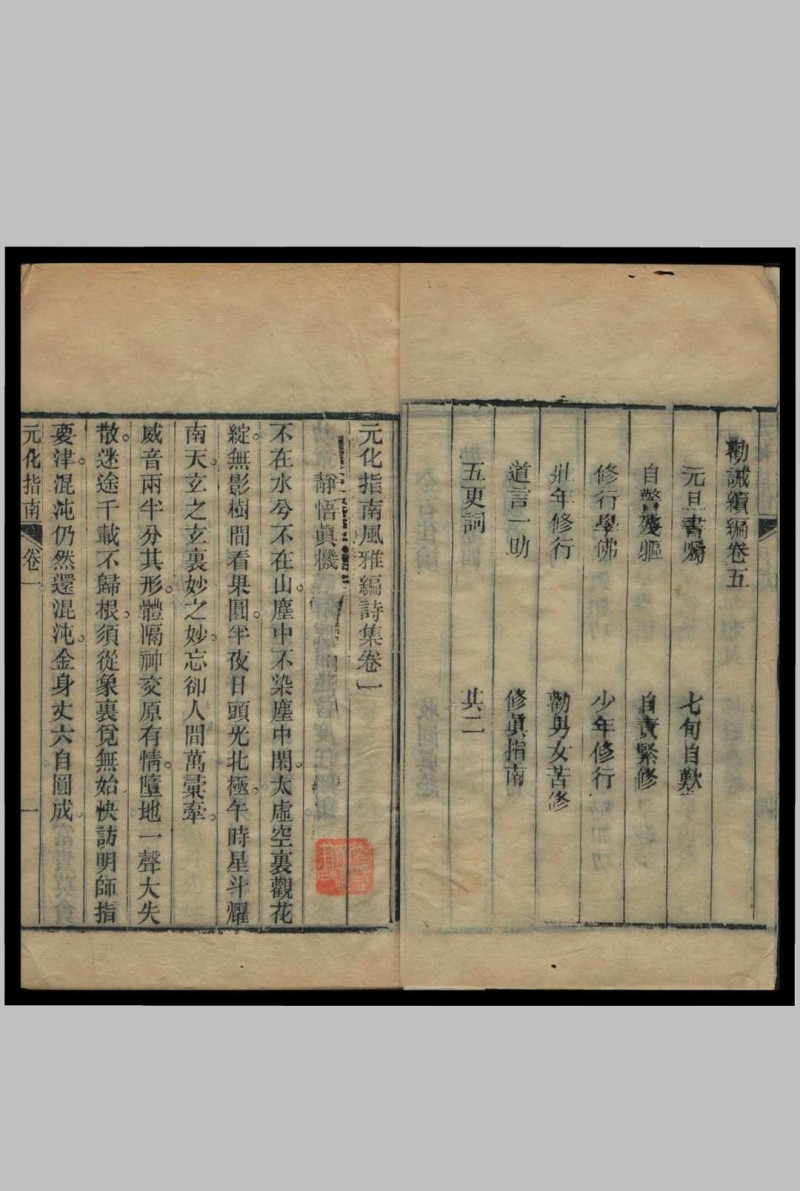 勸誡續編卷五
元旦書燭　七旬自歎
自警殘軀　自責緊修
修行學佛　少年修行
壯年修行　勸男女苦修
道言一助　修眞指南
五更詞　其二
元化指南風雅編詩集卷一
靜悟眞機
不在水兮不在山。塵中不染塵中閑。太虛空裏觀花
綻。無影樹間看果圓。半夜日頭光北極。午時星斗耀
南天。玄之玄裏妙之妙。忘卻人間萬彚牽。
威音兩半分其形。體隔神交原有情。墮地一聲大失
散。迷途千載不歸根。須從象裏覓無始。快訪明師指
要津。混沌仍然還混沌。金身丈六自圓成。
元化指南　卷一　一